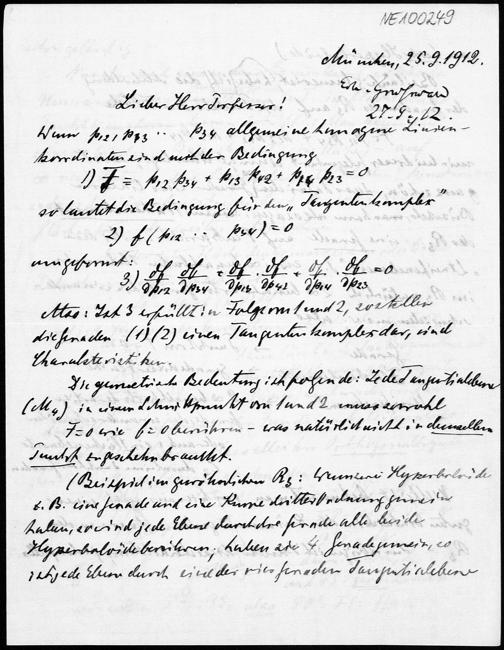 NE100249
München, 25.9.1912.
Erh.
27.9.12.
Lieber Herr Professor!
Wenn p12, p13 ·· p34 allgemeine homogene Linien-
koordinaten sind mit der Bedingung
1) F = p12 p34 + p13 p42 + p14 p23 = 0
so lautet die Bedingung für den „Tangentenkomplex"
2) f (p12 ·· p34) = 0
umgeformt:
3) ∂f/∂p12 ∂f/∂p34 + ∂f/∂p13 · ∂f/∂p42 + ∂f/∂p14 · ∂f/∂p23 = 0
Also: Ist 3 erfüllt in Folge von 1 und 2, so stellen
die Geraden (1) (2) einen Tangentenkomplex dar, sind
Charakteristiken.
Die geometrische Bedeutung ist folgende: Jede Tangentialebene
(M4) in einem Schnittpunkt von 1 und 2 muss sowohl
F=0 wie f=0 berühren – was natürlich nicht in demselben
Punkt zu geschehn braucht.
(Beispiel im gewöhnlichen R3: Wenn zwei Hyperboloide
z.B. eine Gerade und eine Kurve dritter Ordnung gemein
haben, so wird jede Ebene durch die Gerade alle beide
Hyperboloide berühren, haben sie 4 Gerade gemein, so
ist jede Ebene durch eine der vier Geraden Tangentialebene